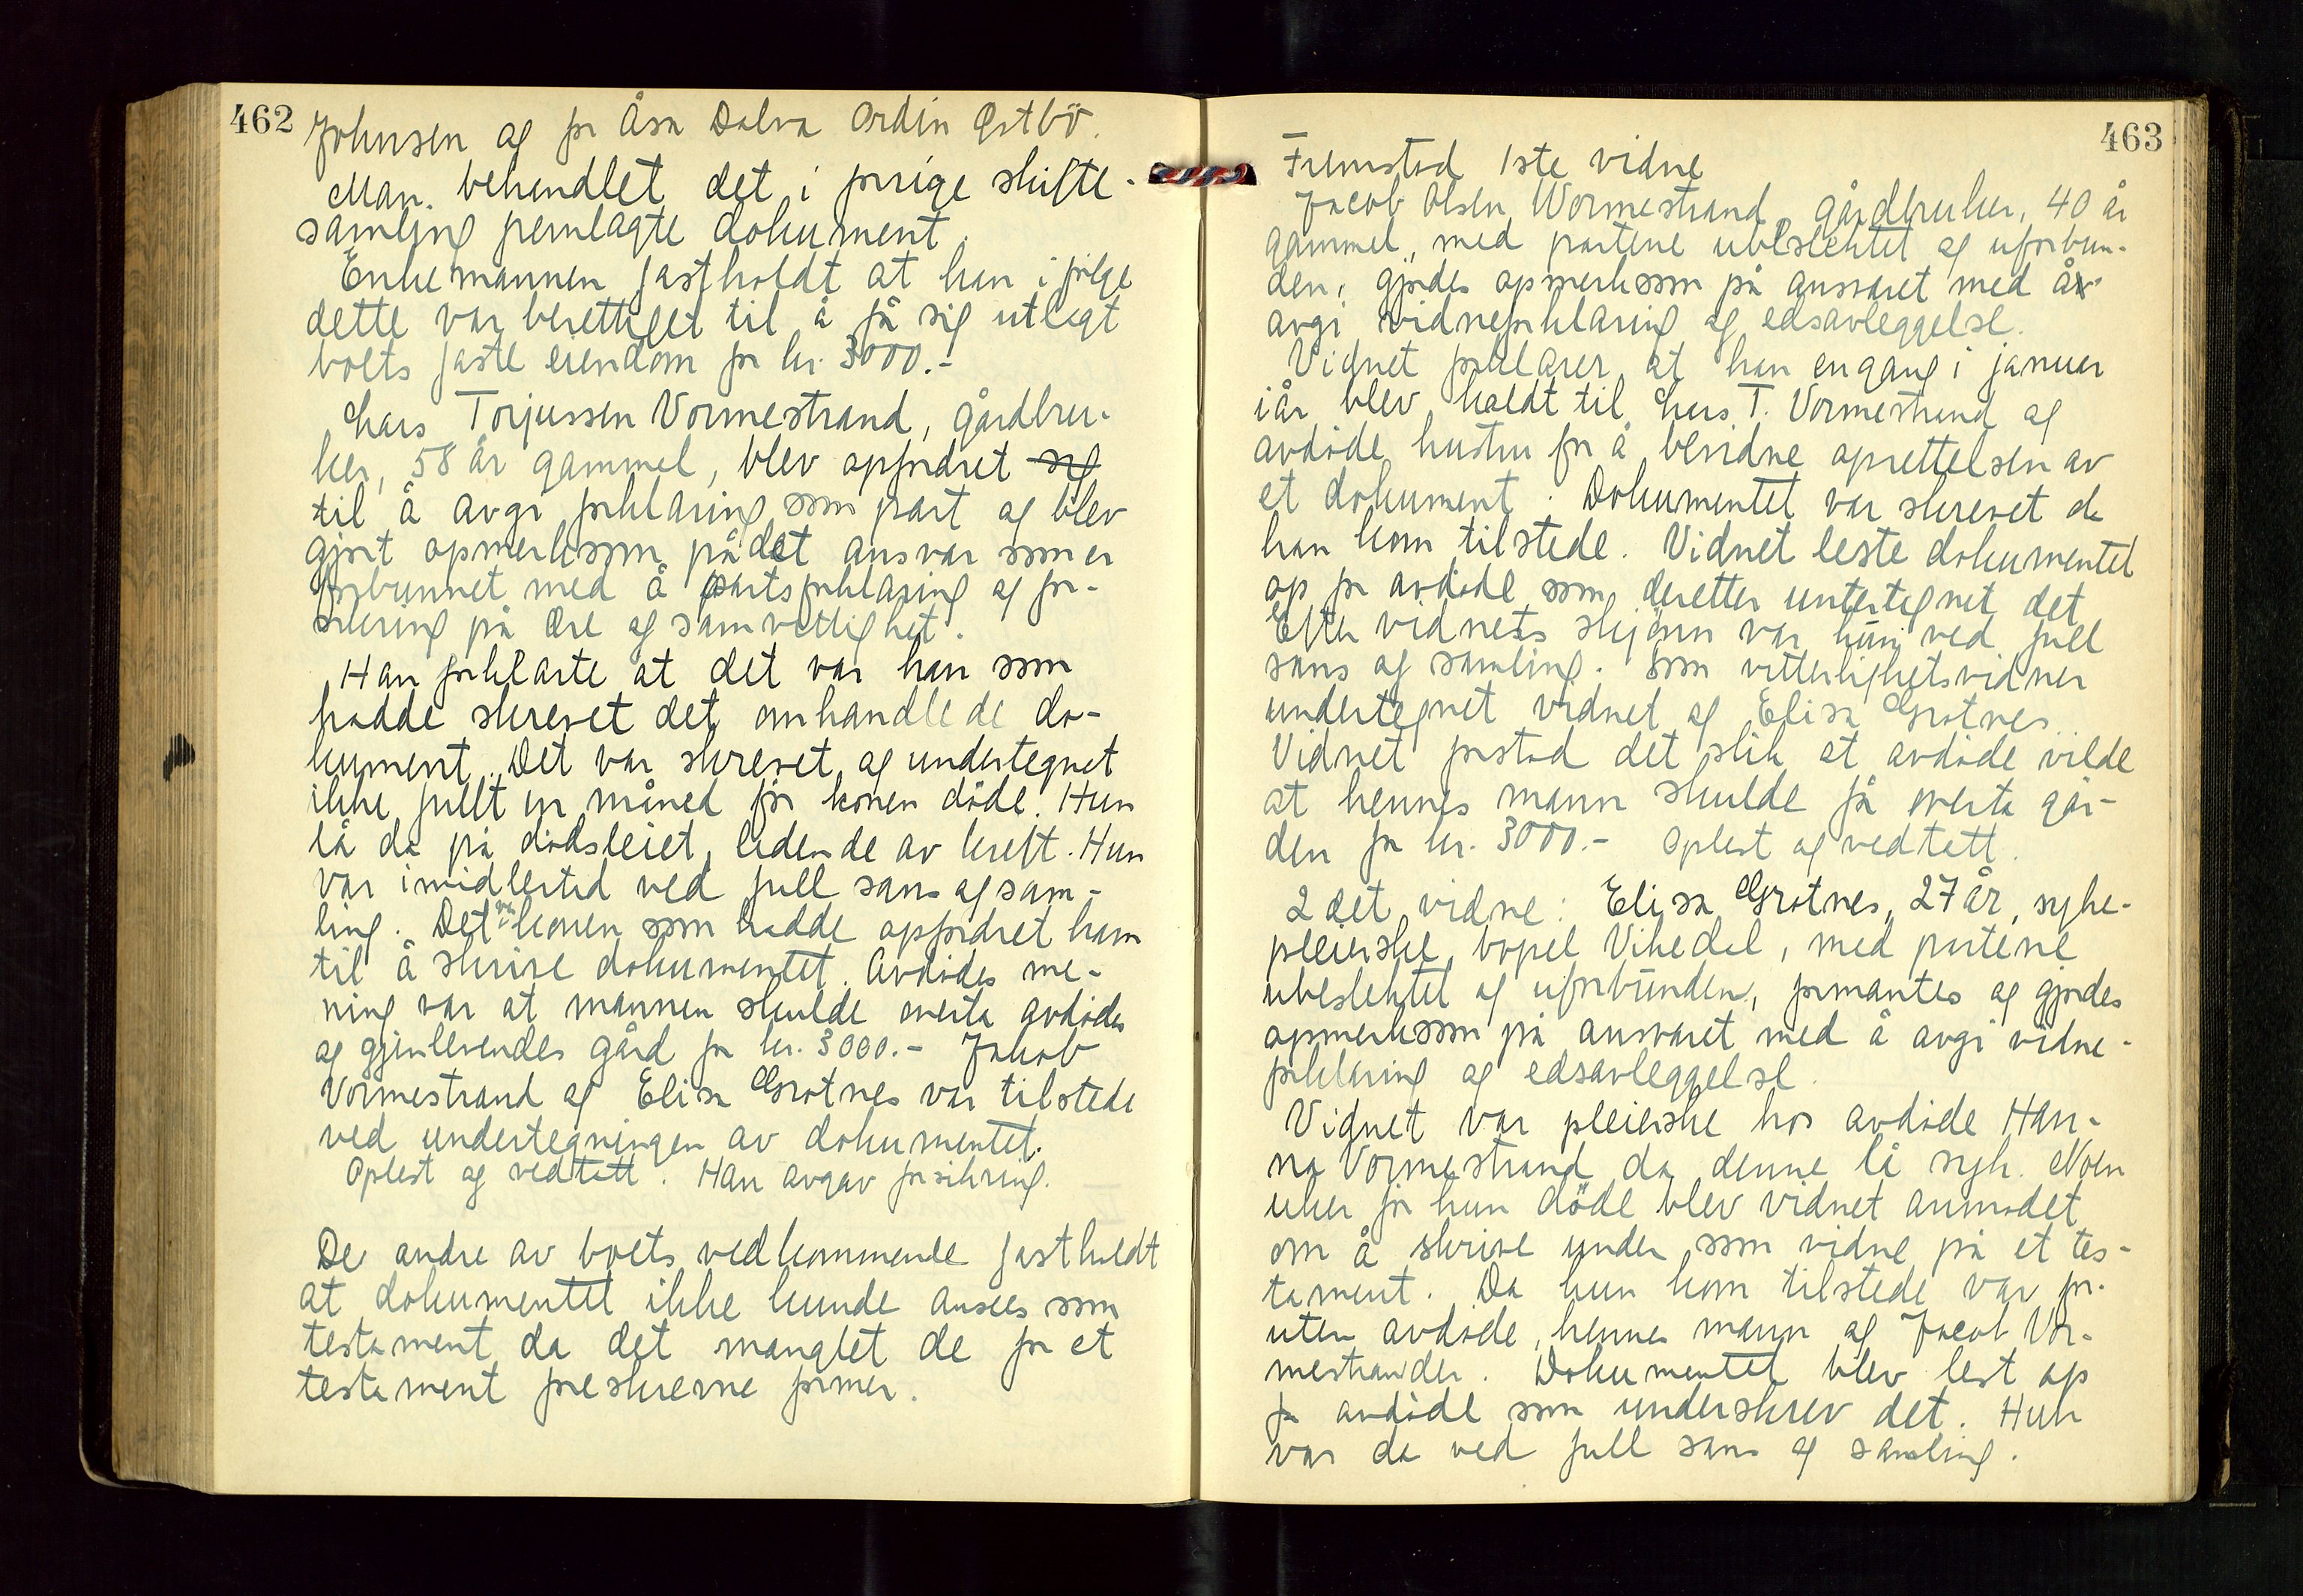 462
Johnsen og for Åsa Dalva Ordin Østbö.
Man behandlet det i forrige skifte-
samling fremlagte dokument.
Enkemannen fastholdt at han ifölge
dette var berettiget til å få sig utlagt
boets faste eiendom for kr. 3000.-
Lars Torjussen Vormestrand, gårdbru-
ker, 58 år gammel, blev opfordret sig
til å avgi forklaring som part og blev
gjort opmerksom på det ansvar som er
forbunnet med å partsforklaring og for-
sikring på ære og samvittighet.
Han forklarte at det var han som
hadde skrevet det omhandlede do-
kument. Det var skrevet og undertegnet
ikke fullt en måned för konen döde. Hun
lå da på dödsleiet, lidende av kreft. Hun
var imidlertid ved full sans og sam-
ling. Det var konen som hadde opfordret ham
til å skrive dokumentet. Avdödes me-
ning var at mannen skulde overta avdödes
og gjenlevendes gård for kr. 3000.- Jakob
Vormestrand og Elisa Grotnes var tilstede
ved undertegningen av dokumentet.
Oplest og vedtatt. Han avgav forsikring.
De andre av boets vedkommende fastholdt
at dokumentet ikke kunde ansees som
testament da det manglet de for et
testament foreskrevne former.
463
Fremstod 1ste vidne
Jacob Olsen Wormestrand, gårdbruker, 40 år
gammel, med partene ubeslektet og uforbun-
den, gjordes opmerksom på ansvaret med å
avgi vidneforklaring og edsavleggelse.
Vidnet forklarer at han engang i januar
i år blev kaldt til Lars T. Vormestrand og
avdöde hustru for å bevidne oprettelsen av
et dokument. Dokumentet var skrevet da
han kom tilstede. Vidnet leste dokumentet
op for avdöde som deretter untertegnet det
Efter vidnets skjönn var hun ved full
sans og samling. Som vitterlighetsvidner
undertegnet vidnet og Elisa Grotnes.
Vidnet forstod det slik at avdöde vilde
at hennes mann skulde få overta går-
den for kr. 3000.- Oplest og vedtatt.
2det vidne: Elisa Grotnes, 27 år, syke-
pleierske, bopel Vikedal, med partene
ubeslektet og uforbunden, formantes og gjordes
opmerksom på ansvaret med å avgi vidne-
forklaring og edsavleggelse.
Vidnet var pleierske hos avdöde Han-
na Vormestrand da denne lå syk. Noen
uker för hun döde blev vidnet anmodet
om å skrive under som vidne på et tes-
tament. Da hun kom tilstede var for-
uten avdöde, hennes mann og Jacob Vor-
mestrand der. Dokumentet blev lest op
for avdöde som underskrev det. Hun
var da ved full sans og samling.